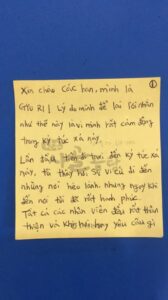 ①
Xin chào các bạn, mình là
GYU RI ! Lý do mình để lại lời nhắn
như thế này là vì mình rất cảm động
trong ký túc xá này
Lần đầu tiên đi đến ký túc xá
này, tôi thấy hồ, sự vì cũ đi đến
những nơi hẻo lánh nhưng ngay khi
đến nơi tôi đã rất hạnh phúc
Tất cả các nhân viên đều rất thân
thiện và khi hay yêu cầu gì